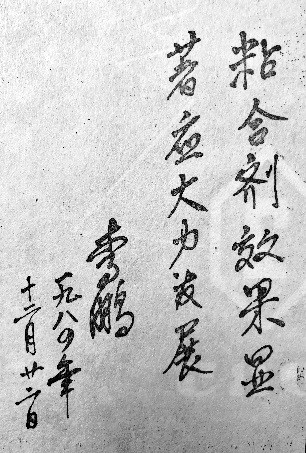 粘合剂效果显
著应大力发展
李鹏
一九八四年
十二月廿二日